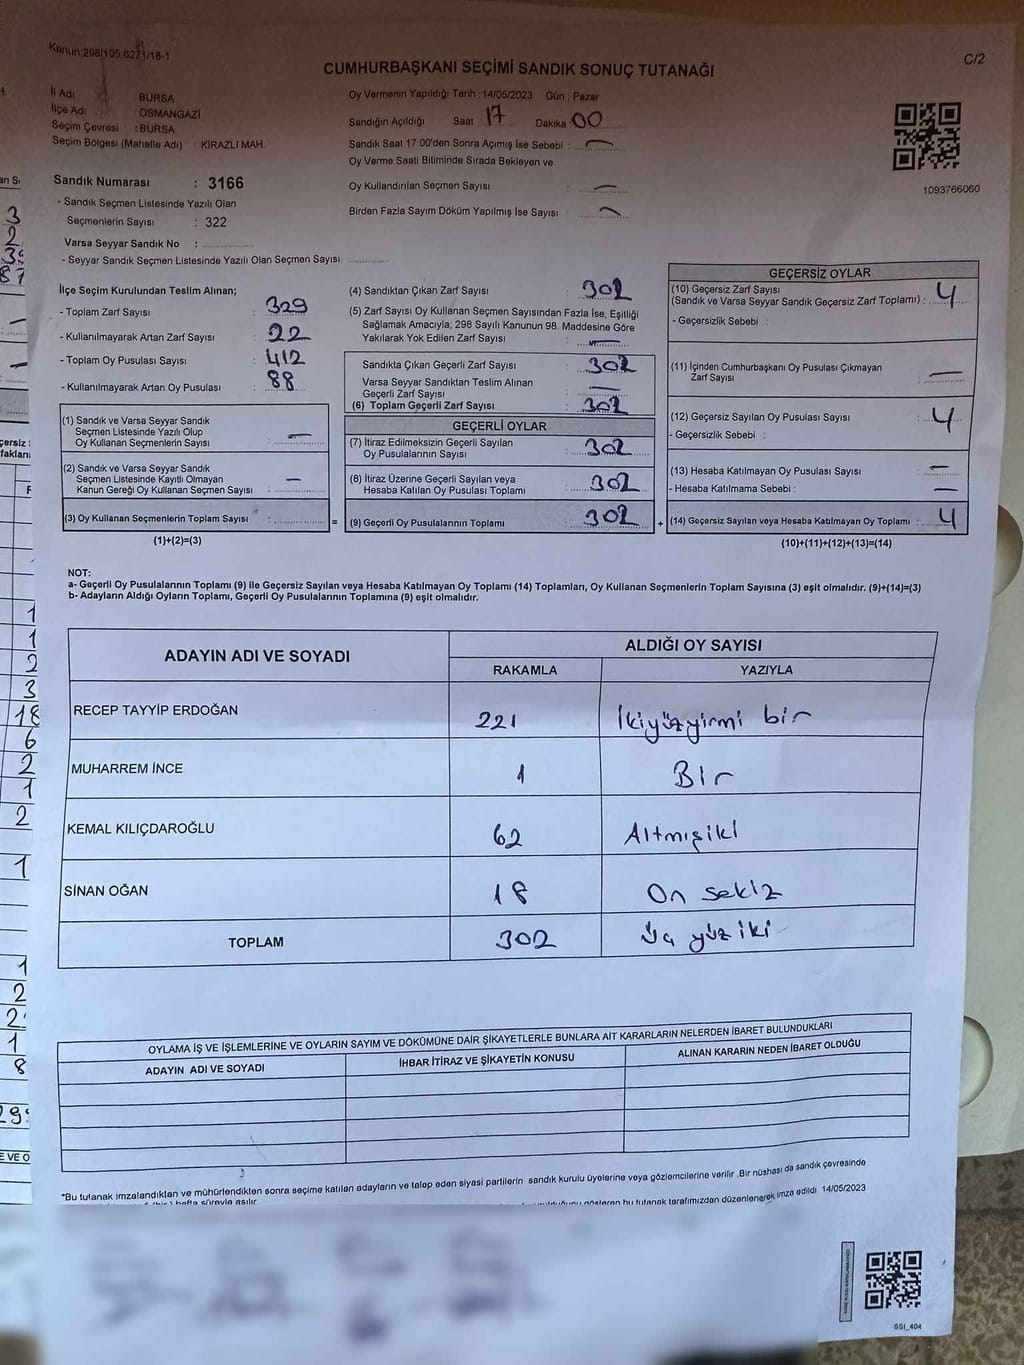 Kanun:298/105,6271/18-1
C/2
CUMHURBAŞKANI SEÇİMİ SANDIK SONUÇ TUTANAĞI
İl Adı BURSA
İlçe Adı : OSMANGAZİ
Seçim Çevresi : BURSA
Seçim Bölgesi (Mahalle Adı) : KİRAZLI MAH.
Sandık Numarası : 3166
- Sandık Seçmen Listesinde Yazılı Olan
Seçmenlerin Sayısı : 322
Varsa Seyyar Sandık No :
- Seyyar Sandık Seçmen Listesinde Yazılı Olan Seçmen Sayısı
Oy Vermenin Yapıldığı Tarih : 14/05/2023 Gün : Pazar
Sandığın Açıldığı Saat : 17 Dakika : 00
Sandık Saat 17.00'den Sonra Açımış İse Sebebi : —
Oy Verme Saati Bitiminde Sırada Bekleyen ve
Oy Kullandırılan Seçmen Sayısı : —
Birden Fazla Sayım Döküm Yapılmış İse Sayısı : —
1093766060
İlçe Seçim Kurulundan Teslim Alınan;
- Toplam Zarf Sayısı : 329
- Kullanılmayarak Artan Zarf Sayısı : 22
- Toplam Oy Pusulası Sayısı : 412
- Kullanılmayarak Artan Oy Pusulası : 88
(1) Sandık ve Varsa Seyyar Sandık
Seçmen Listesinde Yazılı Olup
Oy Kullanan Seçmenlerin Sayısı : —
(2) Sandık ve Varsa Seyyar Sandık
Seçmen Listesinde Kayıtlı Olmayan
Kanun Gereği Oy Kullanan Seçmen Sayısı : —
(3) Oy Kullanan Seçmenlerin Toplam Sayısı :
(1)+(2)=(3)
=
(4) Sandıktan Çıkan Zarf Sayısı : 302
(5) Zarf Sayısı Oy Kullanan Seçmen Sayısından Fazla İse, Eşitliği
Sağlamak Amacıyla; 298 Sayılı Kanunun 98. Maddesine Göre
Yakılarak Yok Edilen Zarf Sayısı : —
Sandıkta Çıkan Geçerli Zarf Sayısı : 302
Varsa Seyyar Sandıktan Teslim Alınan
Geçerli Zarf Sayısı : —
(6) Toplam Geçerli Zarf Sayısı : 302
GEÇERLİ OYLAR
(7) İtiraz Edilmeksizin Geçerli Sayılan
Oy Pusulalarının Sayısı : 302
(8) İtiraz Üzerine Geçerli Sayılan veya
Hesaba Katılan Oy Pusulası Toplamı : 302
(9) Geçerli Oy Pusulalarının Toplamı : 302
+
GEÇERSİZ OYLAR
(10) Geçersiz Zarf Sayısı
(Sandık ve Varsa Seyyar Sandık Geçersiz Zarf Toplamı) : 4
- Geçersizlik Sebebi :
(11) İçinden Cumhurbaşkanı Oy Pusulası Çıkmayan
Zarf Sayısı : —
(12) Geçersiz Sayılan Oy Pusulası Sayısı : 4
- Geçersizlik Sebebi :
(13) Hesaba Katılmayan Oy Pusulası Sayısı : —
- Hesaba Katılmama Sebebi : —
(14) Geçersiz Sayılan veya Hesaba Katılmayan Oy Toplamı : 4
(10)+(11)+(12)+(13)=(14)
NOT:
a- Geçerli Oy Pusulalarının Toplamı (9) ile Geçersiz Sayılan veya Hesaba Katılmayan Oy Toplamı (14) Toplamları, Oy Kullanan Seçmenlerin Toplam Sayısına (3) eşit olmalıdır. (9)+(14)=(3)
b- Adayların Aldığı Oyların Toplamı, Geçerli Oy Pusulalarının Toplamına (9) eşit olmalıdır.
ADAYIN ADI VE SOYADI
ALDIĞI OY SAYISI
RAKAMLA YAZIYLA
RECEP TAYYİP ERDOĞAN 221 İkiyüzyirmi bir
MUHARREM İNCE 1 Bir
KEMAL KILIÇDAROĞLU 62 Altmışiki
SİNAN OĞAN 18 On sekiz
TOPLAM 302 Üç yüz iki
OYLAMA İŞ VE İŞLEMLERİNE VE OYLARIN SAYIM VE DÖKÜMÜNE DAİR ŞİKAYETLERLE BUNLARA AİT KARARLARIN NELERDEN İBARET BULUNDUKLARI
ADAYIN ADI VE SOYADI İHBAR İTİRAZ VE ŞİKAYETİN KONUSU ALINAN KARARIN NEDEN İBARET OLDUĞU
*Bu tutanak imzalandıktan ve mühürlendikten sonra seçime katılan adayların ve talep eden siyasi partilerin sandık kurulu üyelerine veya gözlemcilerine verilir .Bir nüshası da sandık çevresinde
hafta süreyle asılır. gösteren bu tutanak tarafımızdan düzenlenerek imza edildi 14/05/2023